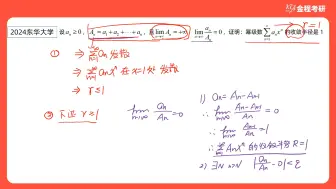 2024东华大学 设aₙ ≥ 0, Aₙ = a₁ + a₂ + ⋯ + aₙ, 且 lim Aₙ = +∞, lim aₙ/Aₙ = 0, 证明: 幂级数 ∑ aₙxⁿ 的收敛半径是 1
金程考研
⇒ r = 1
① ⇒ ∑ aₙ 发散
⇒ ∑ aₙxⁿ 在 x=1 处 发散
⇒ r ≤ 1
② 下证 r ≥ 1
lim n→∞ aₙ/Aₙ = 0
1) aₙ = Aₙ - Aₙ₋₁
∴ lim n→∞ (Aₙ - Aₙ₋₁)/Aₙ = 0
∴ lim n→∞ Aₙ₋₁/Aₙ = 1
∴ ∑ Aₙxⁿ 的收敛半径 R = 1
2) ∃ N n>N |aₙ/Aₙ - 0| < ε